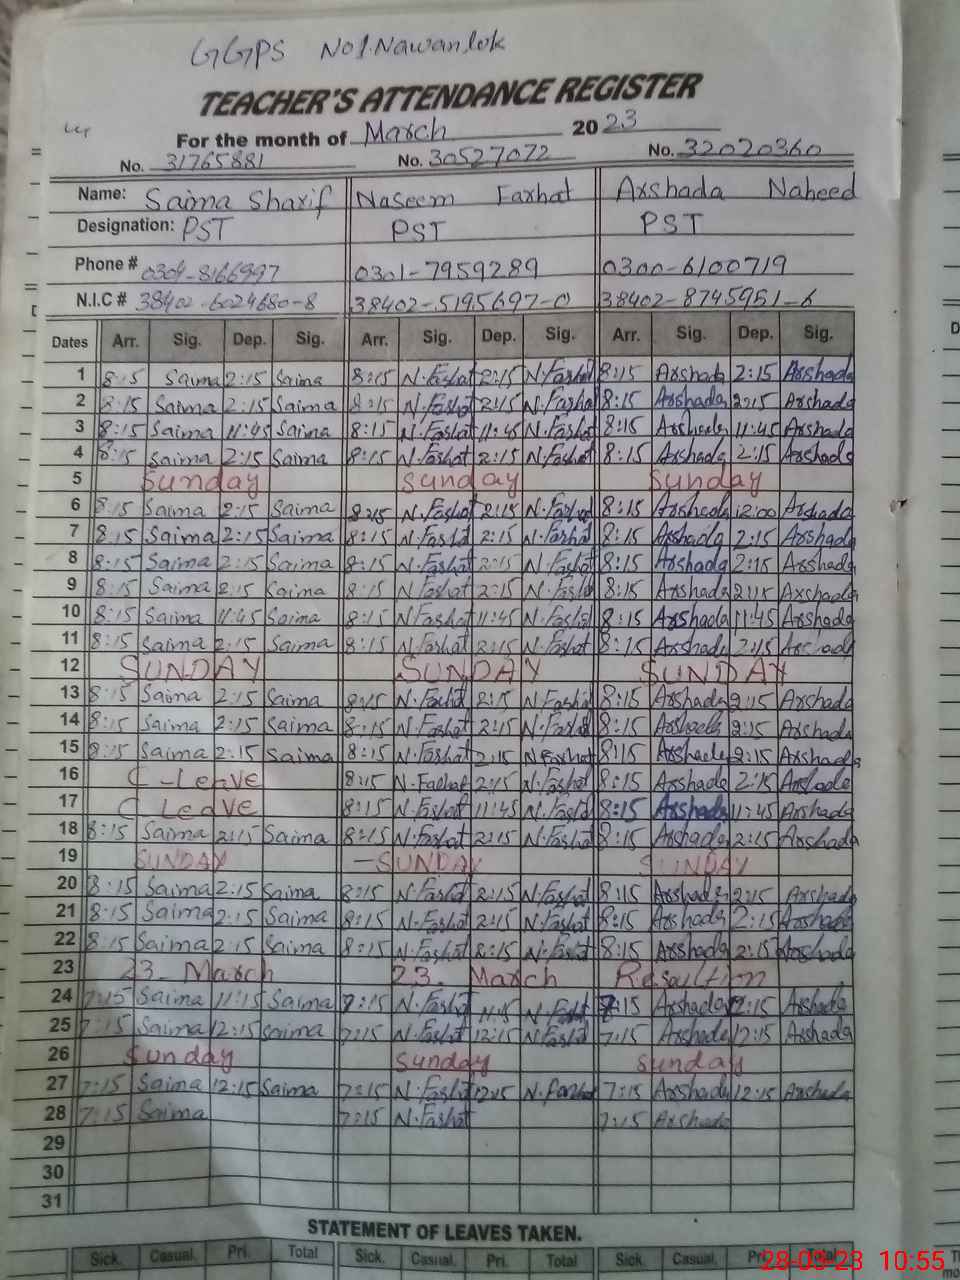 GGPS No1.Nawanlok
TEACHER'S ATTENDANCE REGISTER
For the month of March 2023
No. 31765881 No. 30527072 No. 32020360
Name: Saima Sharif Naseem Farhat Arshada Naheed
Designation: PST PST PST
Phone # 0301-8166997 0301-7959289 0300-6100719
N.I.C # 38402-6024680-8 38402-5195697-0 38402-8745951-6
Dates Arr. Sig. Dep. Sig. Arr. Sig. Dep. Sig. Arr. Sig. Dep. Sig.
1 8:15 Saima 2:15 Saima 8:15 N.Farhat 2:15 N.Farhat 8:15 Arshada 2:15 Arshada
2 8:15 Saima 2:15 Saima 8:15 N.Farhat 2:15 N.Farhat 8:15 Arshada 2:15 Arshada
3 8:15 Saima 11:45 Saima 8:15 N.Farhat 11:45 N.Farhat 8:15 Arshada 11:45 Arshada
4 8:15 Saima 2:15 Saima 8:15 N.Farhat 2:15 N.Farhat 8:15 Arshada 2:15 Arshada
5 Sunday Sunday Sunday
6 8:15 Saima 2:15 Saima 8:15 N.Farhat 2:15 N.Farhat 8:15 Arshada 12:00 Arshada
7 8:15 Saima 2:15 Saima 8:15 N.Farhat 2:15 N.Farhat 8:15 Arshada 2:15 Arshada
8 8:15 Saima 2:15 Saima 8:15 N.Farhat 2:15 N.Farhat 8:15 Arshada 2:15 Arshada
9 8:15 Saima 2:15 Saima 8:15 N.Farhat 2:15 N.Farhat 8:15 Arshada 2:15 Arshada
10 8:15 Saima 11:45 Saima 8:15 N.Farhat 11:45 N.Farhat 8:15 Arshada 11:45 Arshada
11 8:15 Saima 2:15 Saima 8:15 N.Farhat 2:15 N.Farhat 8:15 Arshada 2:15 Arshada
12 SUNDAY SUNDAY SUNDAY
13 8:15 Saima 2:15 Saima 8:15 N.Farhat 2:15 N.Farhat 8:15 Arshada 2:15 Arshada
14 8:15 Saima 2:15 Saima 8:15 N.Farhat 2:15 N.Farhat 8:15 Arshada 2:15 Arshada
15 8:15 Saima 2:15 Saima 8:15 N.Farhat 2:15 N.Farhat 8:15 Arshada 2:15 Arshada
16 C-Leave 8:15 N.Farhat 2:15 N.Farhat 8:15 Arshada 2:15 Arshada
17 C Leave 8:15 N.Farhat 11:45 N.Farhat 8:15 Arshada 11:45 Arshada
18 8:15 Saima 2:15 Saima 8:15 N.Farhat 2:15 N.Farhat 8:15 Arshada 2:15 Arshada
19 SUNDAY -SUNDAY SUNDAY
20 8:15 Saima 2:15 Saima 8:15 N.Farhat 2:15 N.Farhat 8:15 Arshada 2:15 Arshada
21 8:15 Saima 2:15 Saima 8:15 N.Farhat 2:15 N.Farhat 8:15 Arshada 2:15 Arshada
22 8:15 Saima 2:15 Saima 8:15 N.Farhat 2:15 N.Farhat 8:15 Arshada 2:15 Arshada
23 23-March 23. March Resoultion
24 7:15 Saima 11:15 Saima 7:15 N.Farhat N.Farhat 7:15 Arshada 12:15 Arshada
25 7:15 Saima 12:15 Saima 7:15 N.Farhat 12:15 N.Farhat 7:15 Arshada 12:15 Arshada
26 Sunday Sunday Sunday
27 7:15 Saima 12:15 Saima 7:15 N.Farhat 12:15 N.Farhat 7:15 Arshada 12:15 Arshada
28 7:15 Saima 7:15 N.Farhat 7:15 Arshada
29
30
31
STATEMENT OF LEAVES TAKEN.
Sick. Casual. Pri. Total Sick. Casual. Pri. Total Sick. Casual. Pri. Total
28-03-23 10:55